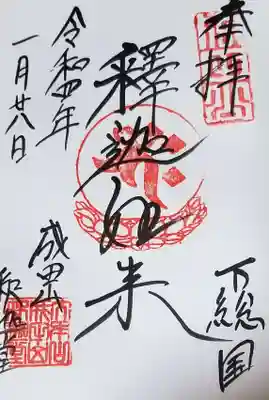 奉拝
下総国
釋迦如来
令和四年
一月廿八日
成田山